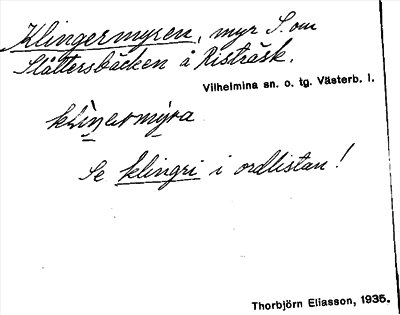 Klingermyren, myr S. om
Slåttersbäcken å Risträsk.
Vilhelmina sn. o. tg. Västerb. l.
klìŋermýra
Se klingri i ordlistan!
Thorbjörn Eliasson, 1935.